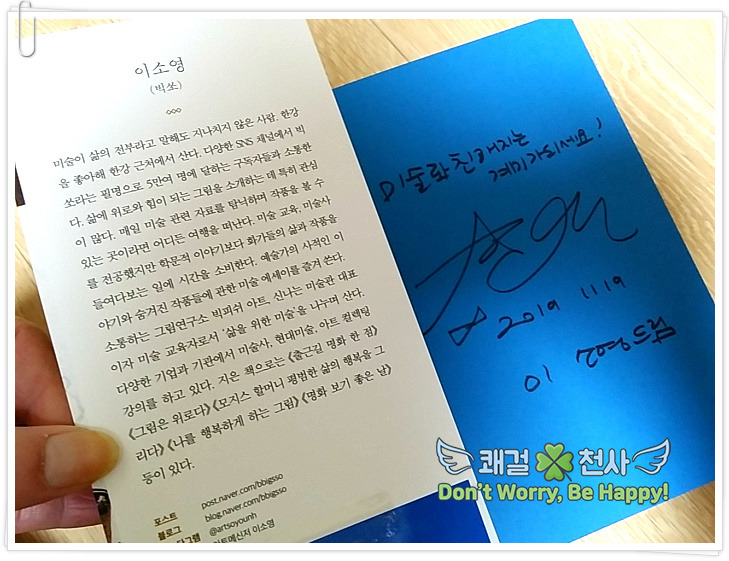 이소영
(빅쏘)
미술이 삶의 전부라고 말해도 지나치지 않은 사람. 한강
을 좋아해 한강 근처에서 산다. 다양한 SNS 채널에서 빅
쏘라는 필명으로 5만여 명에 달하는 구독자들과 소통한
다. 삶에 위로와 힘이 되는 그림을 소개하는 데 특히 관심
이 많다. 매일 미술 관련 자료를 탐닉하며 작품을 볼 수
있는 곳이라면 어디든 여행을 떠난다. 미술 교육, 미술사
를 전공했지만 학문적 이야기보다 화가들의 삶과 작품을
들여다보는 일에 시간을 소비한다. 예술가의 사적인 이
야기와 숨겨진 작품들에 관한 미술 에세이를 즐겨 쓴다.
소통하는 그림연구소 빅피쉬 아트, 신나는 미술관 대표
이자 미술 교육자로서 ‘삶을 위한 미술’을 나누며 산다.
다양한 기업과 기관에서 미술사, 현대미술, 아트 컬렉팅
강의를 하고 있다. 지은 책으로는 《출근길 명화 한 점》
《그림은 위로다》 《모지스 할머니 평범한 삶의 행복을 그
리다》 《나를 행복하게 하는 그림》 《명화 보기 좋은 날》
등이 있다.
포스트 post.naver.com/bbigsso
블로그 blog.naver.com/bbigsso
그램 @artsoyounh
아트메신저 이소영
미술과 친해지는
계기가 되세요!
2019 11 19
이소영 드림
쾌걸 천사
Don't Worry, Be Happy!